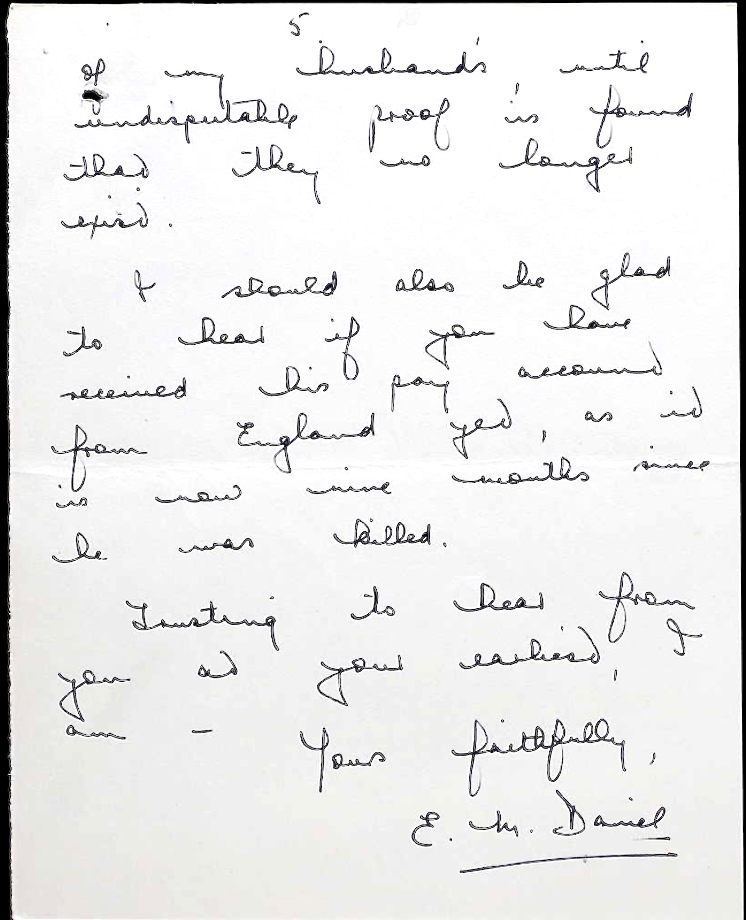 5
of my husband's until
undisputable proof is found
that they no longer
exist.
I should also be glad
to hear if you have
received his pay account
from England yet, as it
is now nine months since
he was killed.
Trusting to hear from
you at your earliest, I
am –
Yours faithfully,
E. M. Daniel